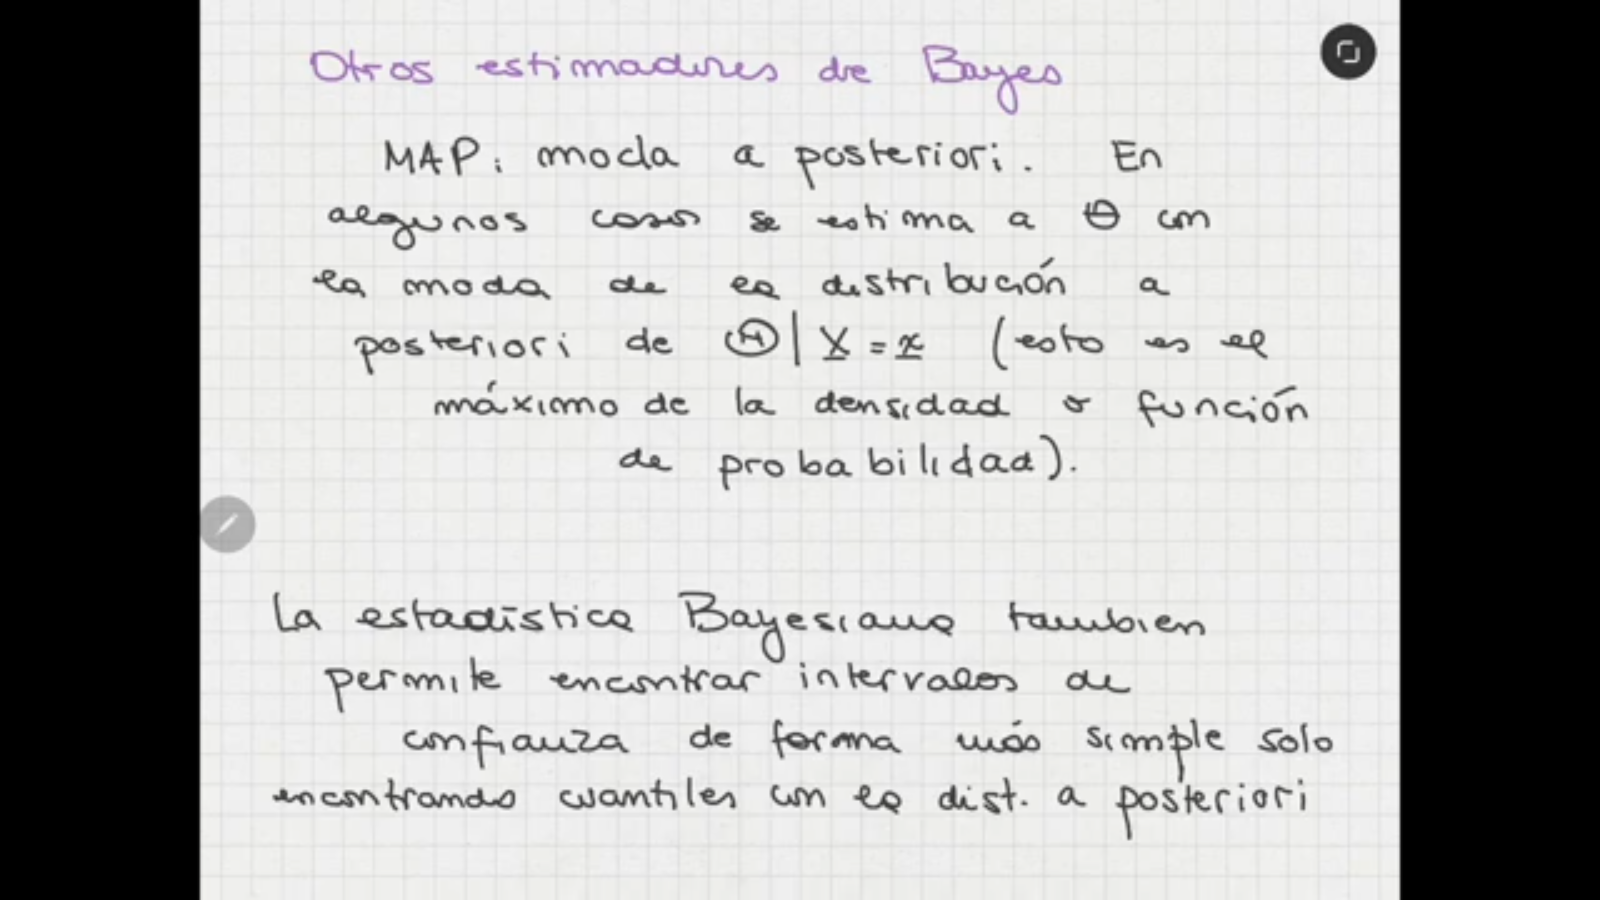 Otros estimadores de Bayes
MAP: moda a posteriori. En
algunos casos se estima a θ con
la moda de la distribución a
posteriori de Θ | X = x (esto es el
máximo de la densidad o función
de probabilidad).
La estadística Bayesiana tambien
permite encontrar intervalos de
confianza de forma más simple solo
encontrando cuantiles con la dist. a posteriori